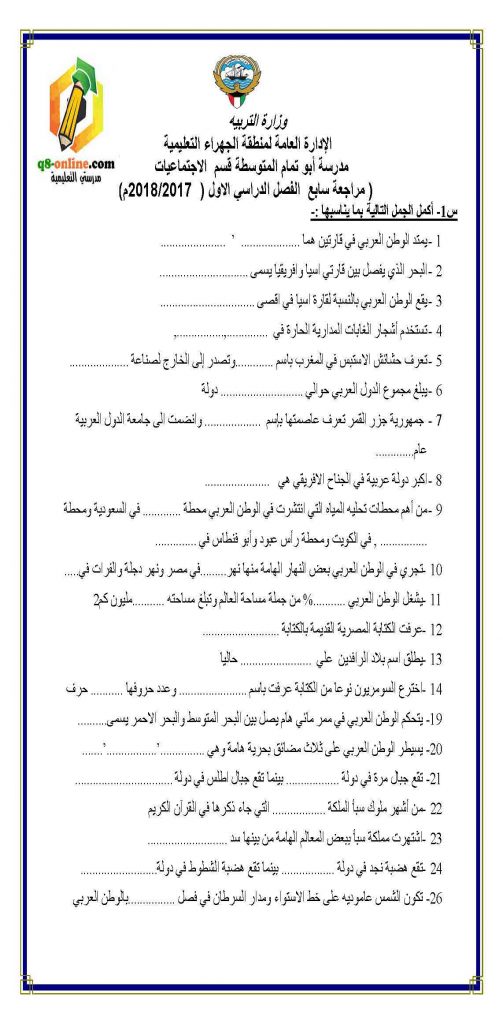 q8-online.com
مدرستي التعليمية
وزارة التربيه
الإدارة العامة لمنطقة الجهراء التعليمية
مدرسة أبو تمام المتوسطة قسم الاجتماعيات
( مراجعة سابع الفصل الدراسي الاول ( 2018/2017م)
س1- أكمل الجمل التالية بما يناسبها :-
1 -يمتد الوطن العربي في قارتين هما .................... ' ......................
2 -البحر الذي يفصل بين قارتي اسيا وافريقيا يسمى ..............................
3 -يقع الوطن العربي بالنسبة لقارة اسيا في اقصى ................................
4 -تستخدم أشجار الغابات المدارية الحارة في ..............,................
5 -تعرف حشائش الاستبس في المغرب باسم .............وتصدر إلى الخارج لصناعة ....................
6 -يبلغ مجموع الدول العربي حوالي ............................ دولة
7 - جمهورية جزر القمر تعرف عاصمتها بإسم ................... وانضمت الى جامعة الدول العربية
عام.............
8 -اكبر دولة عربية في الجناح الافريقي هي ......................
9 -من أهم محطات تحليه المياه التي انتشرت في الوطن العربي محطة ............. في السعودية ومحطة
................ , في الكويت ومحطة رأس عبود وأبو فنطاس في ..............
10 -تجري في الوطن العربي بعض النهار الهامة منها نهر.........في مصر ونهر دجلة والفرات في.....
11 -يشغل الوطن العربي ...........% من جملة مساحة العالم وتبلغ مساحته ...........مليون كم2
12 -عرفت الكتابة المصرية القديمة بالكتابة ..........................
13 -يطلق اسم بلاد الرافدين علي ........................ حاليا
14 -اخترع السومريون نوعا من الكتابة عرفت باسم ....................... وعدد حروفها ........... حرف
19 -يتحكم الوطن العربي في ممر مائي هام يصل بين البحر المتوسط والبحر الاحمر يسمى..........
20- يسيطر الوطن العربي على ثلاث مضائق بحرية هامة وهي ..............'.................'.......
21- تقع جبال مرة في دولة .................. بينما تقع جبال اطلس في دولة ................................
22 -من أشهر ملوك سبأ الملكة .................. التي جاء ذكرها في القرآن الكريم
23 - اشتهرت مملكة سبأ ببعض المعالم الهامة من بينها سد ...........................
24 -تقع هضبة نجد في دولة .................. بينما تقع هضبة الشطوط في دولة.........................
26- تكون الشمس عاموديه على خط الاستواء ومدار السرطان في فصل ................بالوطن العربي